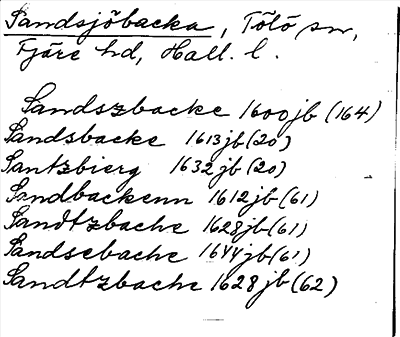 Sandsjöbacka, Tölö sn,
Fjäre hd, Hall. l.
Sandszbacke 1600 jb (164)
Sandsbacke 1613 jb (20)
Santzbierg 1632 jb (20)
Sandbackenn 1612 jb (61)
Sandtzbache 1628 jb (61)
Sandsebache 1644 jb (61)
Sandtzbache 1628 jb (62)